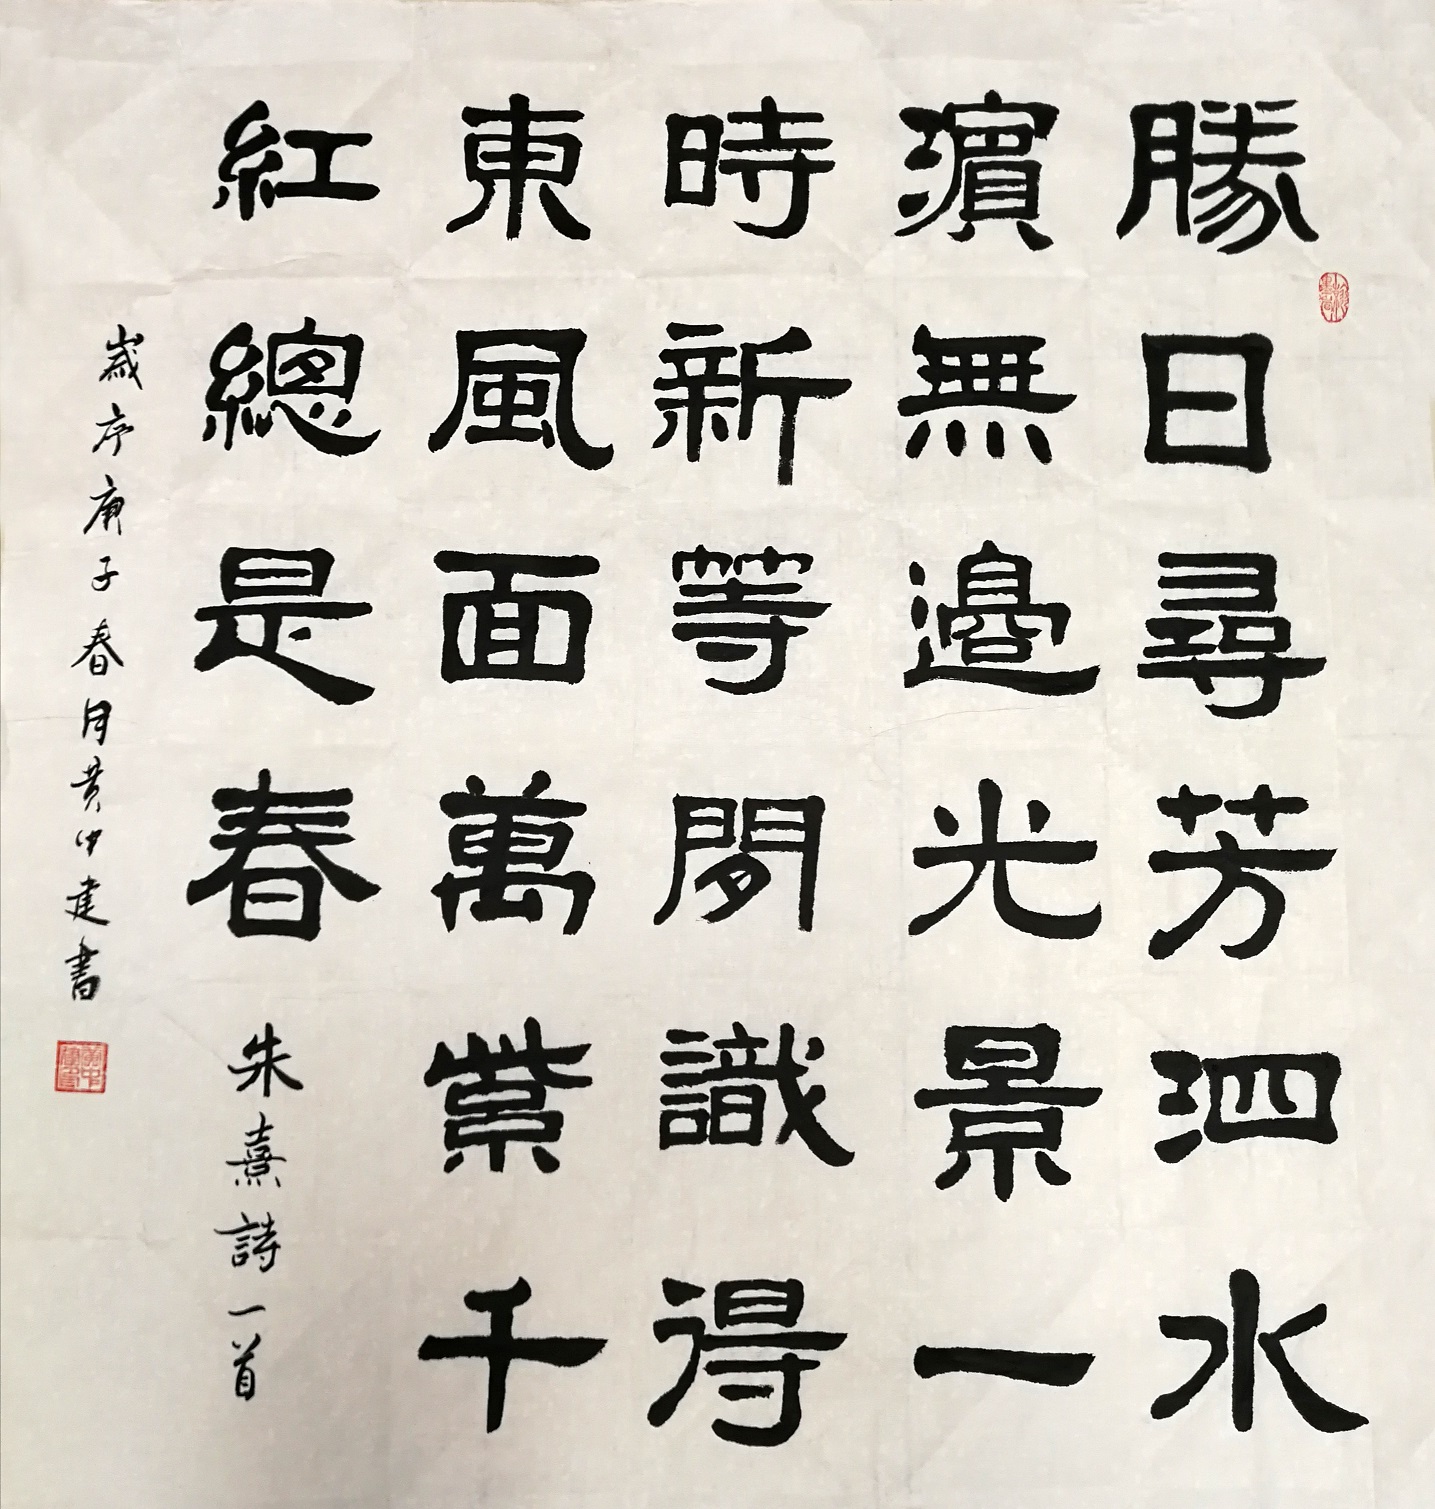 勝日尋芳泗水
濵無邊光景一
時新等閒識得
東風面萬紫千
紅總是春
朱熹詩一首
歲序庚子春月黄中建書